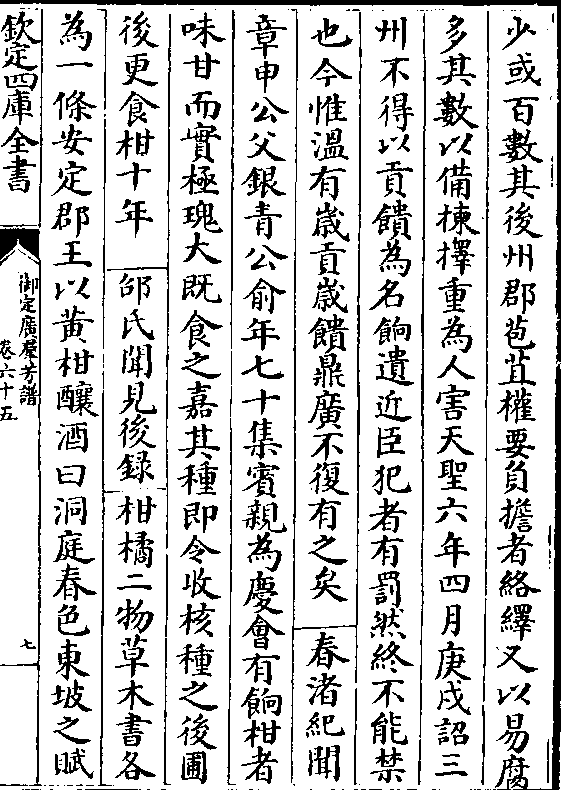 少或百數其後州郡苞苴權要負擔者絡繹又以易腐
多其數以備揀擇重為人害天聖六年四月庚戌詔三
州不得以貢饋為名餉遺近臣犯者有罰然終不能禁
也今惟溫有歲貢歲饋鼎廣不復有之矣　春渚紀聞
章申公父銀青公俞年七十集賓親為慶會有餉柑者
味甘而實極瑰大既食之嘉其種即令收核種之後圃
後更食柑十年　邵氏聞見後録　柑橘二物草木書各
為一條安定郡王以黃柑釀酒曰洞庭春色東坡之賦
欽定四庫全書
御定廣羣芳譜
卷六十五
七